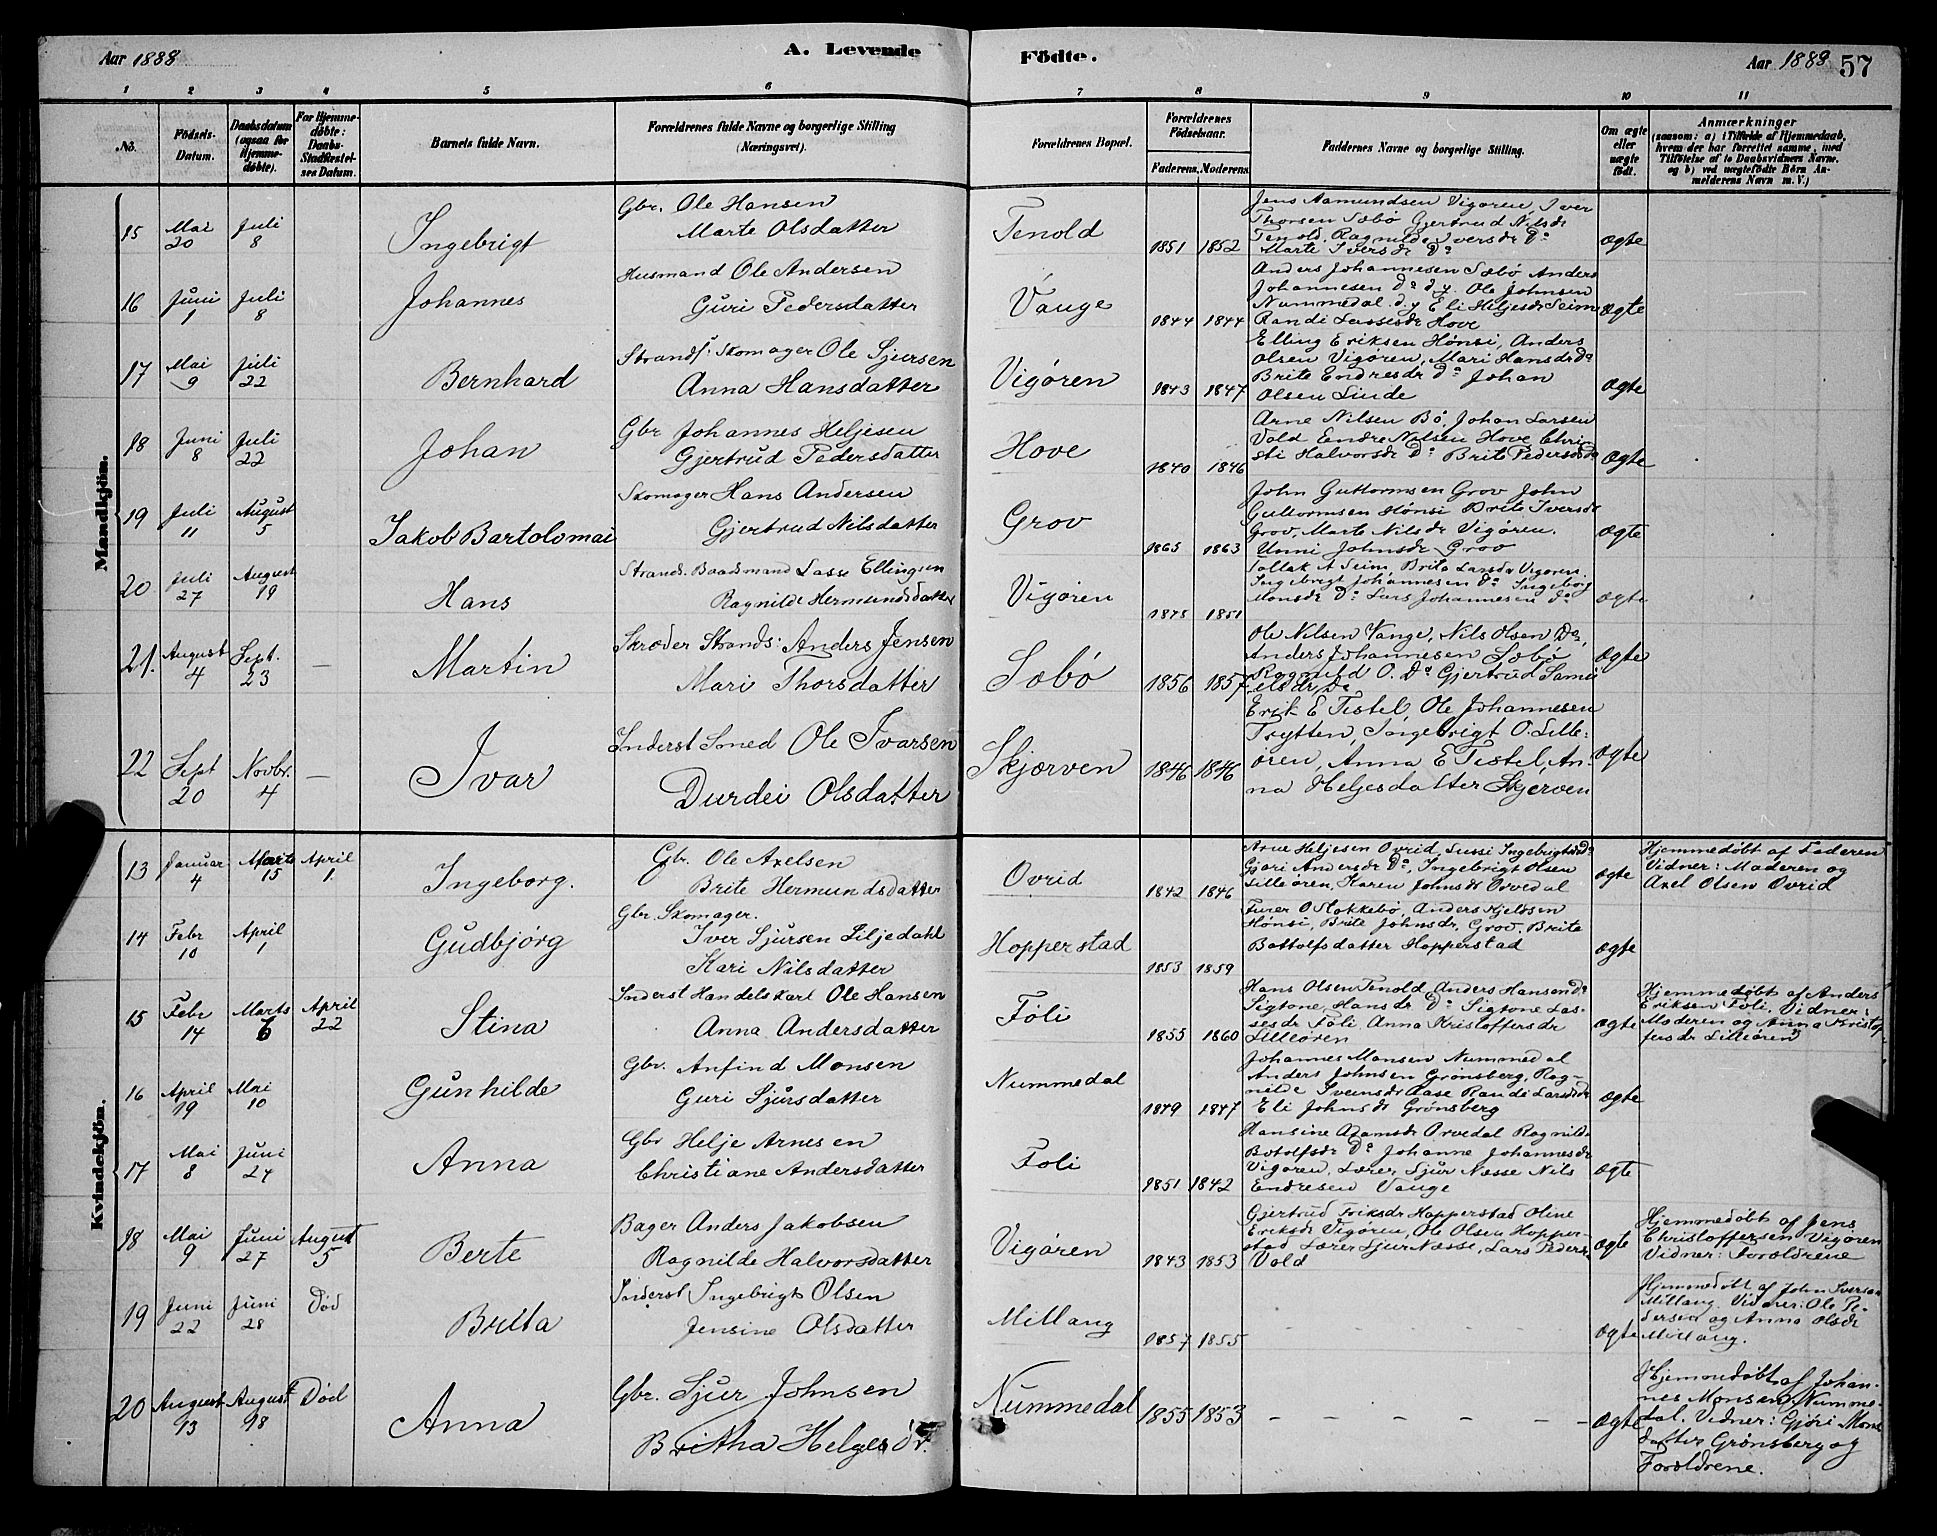 Aar 1888
A. Levende
Födte.
Aar 1888
57
1 2 3 4 5 6 7 8 9 10 11
No.
Födsels-Datum.
Daabsdatum (ogsaa for Hjemme-döbte).
For Hjemme-döbte: Daabs-Stadfæstel-ses Datum.
Barnets fulde Navn.
Forældrenes fulde Navne og borgerlige Stilling (Næringsvei).
Forældrenes Bopæl.
Forældrenes Födselsaar.
Faderens. Moderens.
Faddernes Navne og borgerlige Stilling.
Om ægte eller uægte födt.
Anmærkninger
(saasom: a) i Tilfælde af Hjemmedaab,
hvem der har forrettet samme, med
Tilföielse af to Daabsvidners Navne.
og b) ved uægtefödte Börn An-
melderens Navn m. V.)
Mandkjön.
15 Mai 20 Juli 8 Ingebrigt
Gbr. Ole Hansen
Marte Olsdatter
Tenold 1851 1852
Jens Aamundsen Vigøren, Iver
Thorsen Sæbø Gjertrud Nilsdr
Tenold, Ragnilde Iversdr Do
Marte Iversdr Do
ægte
16 Juni 1 Juli 8 Johannes
Husmand Ole Andersen
Guri Pedersdatter
Vange 1844 1844
Anders Johannesen Sæbø Anders
Johannesen Do d.y. Ole Johnsen
Nummedal d.y Eli Heljesdr Seim
Randi Lassesdr Hove
ægte
17 Mai 9 Juli 22 Bernhard
Strands. Skomager Ole Sjursen
Anna Hansdatter
Vigøren 1843 1847
Elling Eriksen Hønsi, Anders
Olsen Vigøren, Mari Hansdr Do
Brite Endresdr Do Johan
Olsen Linde
ægte
18 Juni 8 Juli 22 Johan
Gbr Johannes Heljesen
Gjertrud Pedersdatter
Hove 1840 1846
Arne Nilsen Bø, Johan Larsen
Vold Endre Nilsen Hove Chri-
sti Halvorsdr Do Brite Pedersdr Do
ægte
19 Juli 11 August 5 Jakob Bartolomai
Skomager Hans Andersen
Gjertrud Nilsdatter
Grov 1865 1863
John Guttormsen Grov John
Guttormsen Hønsi Brite Iversdr
Grov, Marte Nilsdr Vigøren.
Unni Johnsdr Grov
ægte
20 Juli 27 August 19 Hans
Strands. Baadsmand Lasse Ellingsen
Ragnilde Hermundsdatter
Vigøren 1875 1851
Tollak A Seim, Brita Larsdr Vigøren
Ingebrigt Johannesen Do Ingeborg
Monsdr Do Lars Johannesen Do
ægte
21. August 4 Sept. 23 — Martin
Skræder Strands: Anders Jensen
Mari Thorsdatter
Sæbø 1856 1857
Ole Nilsen Vange, Nils Olsen Do,
Anders Johannesen Sæbø
Ragnild O. Do Gjertrud Samu-
elsdr, Do
ægte
22 Sept 20 Novbr. 4 — Ivar
Inderst Smed Ole Ivarsen
Durdei Olsdatter
Skjærven 1846 1846
Erik E Tistel, Ole Johannesen
Trytten, Ingebrigt O. Lille-
øren, Anna E Tistel, An-
na Heljesdatter Skjerven
ægte
Kvindekjön.
13 Januar 4 Marts 15 April 1. Ingeborg.
Gbr. Ole Axelsen
Brite Hermundsdatter
Ovrid 1842 1846
Arne Heljesen Ovrid, Sussi Ingebrigtsdr Do
Gjøri Andersdr Do, Ingebrigt Olsen
Lilleøren, Karen Johnsdr Orvedal
ægte
Hjemmedøbt af Faderen
Vidner: Moderen og
Axel Olsen Ovrid
14 Febr 10 April 1 Gudbjørg
Gbr. Skomager.
Iver Sjursen Liljedahl
Kari Nilsdatter
Hopperstad 1853 1859
Furer O Stokkebø, Anders Kjelosen
Hønsi, Brite Johnsdr, Grov. Brite
Bottolfsdatter Hopperstad
ægte
15 Febr 14 Marts 6 April 22 Stina
Inderst Handelskarl Ole Hansen
Anna Andersdatter
Føli 1855 1860
Hans Olsen Tenold, Anders Hansen Do
Sigtone, Hansdr Do Sigtone Las-
sesdr Føli, Anna Kristoffersdr
Lilleøren
ægte
Hjemmedøbt af Anders
Eriksen Føli. Vidner:
Moderen og Anna Kristof
fersdr Lilleøren
16 April 19 Mai 10 Gunhilde
Gbr. Anfind Monsen
Guri Sjursdatter
Nummedal 1849 1847
Johannes Monsen Nummedal
Anders Johnsen Grønsberg, Rag-
nilde Svensdr Aase Randi Larsdr Do
Eli Johnsdr Grønsberg
ægte
17 Mai 8 Juni 24 Anna
Gbr Helje Arnesen
Christiane Andersdatter
Føli 1851 1842
Hansine Adamsdr Orvedal Ragnilde
Botolfsdr Do Johanne Johannesdr
Vigøren, Lærer Sjur Næsse Nils
Endresen Vange
ægte
18 Mai 9 Juni 27 August 5 Berte
Bager Anders Jakobsen
Ragnilde Halvorsdatter
Vigøren 1843 1853
Gjertrud Eriksdr Hopperstad Oline
Eriksdr Vigøren, Ole Olsen Hopper-
stad Lærer Sjur Næsse, Lars Peders.
Vold
ægte
Hjemmedøbt af Jens
Christoffersen Vigøren
Vidner: Forældrene
19 Juni 22 Juni 28 Død Brita
Inderst Ingebrigt Olsen
Jensine Olsdatter
Millang 1857 1855
ægte
Hjemmedøbt af John Iversen
Millang. Vidner: Ole Pe-
dersen og Anna Olsdr
Millang.
20 August 13 August 18 Død Anna
Gbr. Sjur Johnsen
Britha Helgesdr.
Nummedal 1855 1853
ægte
Hjemmedøbt af Johan-
nes Monsen Numme-
dal. Vidner: Gjøri Mons
datter Grønsberg og
Forældrene.